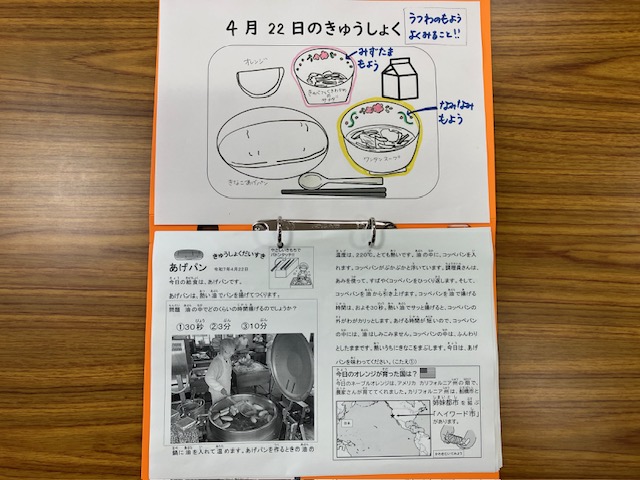 4月22日のきゅうしょく
うつわのもよう
よくみること!!
オレンジ
みずたま
もよう
きゅうりとわかめの
サラダ
なみなみ
もよう
ワンタンスープ
きなこあげパン
きゅうしょくだいすき
あげパン
令和7年4月22日
今日の給食は、あげパンです。
あげパンは、熱い油でパンを揚げてつくります。
問題 油の中でどのくらいの時間揚げるのでしょうか?
①30秒 ②3分 ③10分
鍋に油を入れて温めます。あげパンを作るときの油の
温度は、220℃。とても熱いです。油の中に、コッペパンを入
れます。コッペパンがぷかぷかと浮いています。調理員さんは、
あみを使って、すばやくコッペパンをひっくり返します。そして、
コッペパンを油から引き上げます。コッペパンを油で揚げる
時間は、およそ30秒。熱い油でサッと揚げると、コッペパンの
外がわがカリッとします。あげる時間が短いので、コッペパン
の中には、油はしみこみません。コッペパンの中は、ふんわり
としたままです。熱いうちにきなこをまぶします。今日は、あげ
パンを味わってください。(こたえ①)
今日のオレンジが育った国は?
今日のネーブルオレンジは、アメリカ カリフォルニア州の畑で、
農家さんが育ててくれました。カリフォルニア州は、船橋市と
姉妹都市を結ぶ
「ヘイワード市」
があります。
日本